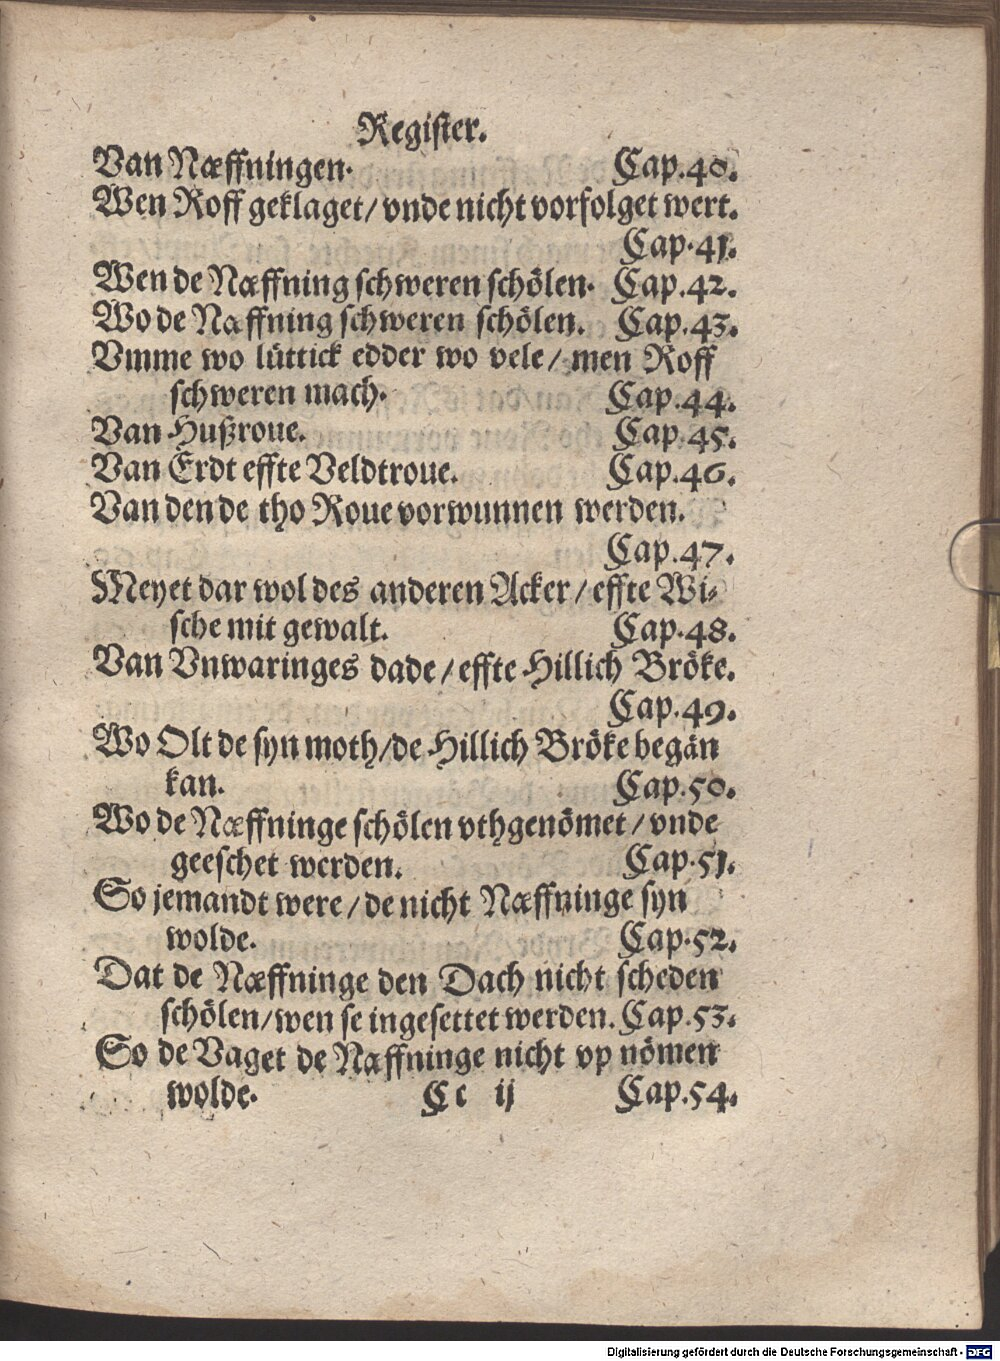 Register.
Van Næffningen. Cap.40.
Wen Roff geklaget/ vnde nicht vorfolget wert.
Cap.41.
Wen de Næffning schweren schölen. Cap.42.
Wo de Næffning schweren schölen. Cap.43.
Vmme wo lüttick edder wo vele/ men Roff
schweren mach. Cap.44.
Van Hußroue. Cap.45.
Van Erdt effte Veldtroue. Cap.46.
Van den de tho Roue vorwunnen werden.
Cap.47.
Meyet dar wol des anderen Acker/ effte Wi⸗
sche mit gewalt. Cap.48.
Van Vnwaringes dade/ effte Hillich Bröke.
Cap.49.
Wo Olt de syn moth/ de Hillich Bröke begän
kan. Cap.50.
Wo de Næffninge schölen vthgenömet/ vnde
geeschet werden. Cap.51.
So jemandt were/ de nicht Næffninge syn
wolde. Cap.52.
Dat de Næffninge den Dach nicht scheden
schölen/ wen se ingesettet werden. Cap.53.
So de Vaget de Næffninge nicht vp nömen
wolde. Cc ij Cap.54.
Digitalisierung gefördert durch die Deutsche Forschungsgemeinschaft - DFG